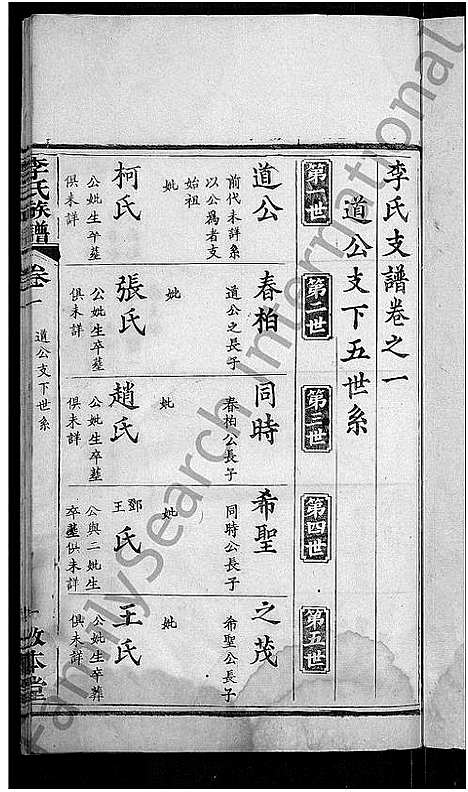 李氏支譜卷之一
道公支下五世系
第一世
第二世
第三世
第四世
第五世
道公
前代未詳系
以公爲者支
始祖
妣
柯氏
公妣生卒葬
俱未詳
春柏
道公之長子
妣
張氏
公妣生卒葬
俱未詳
同時
春柏公長子
妣
趙氏
公妣生卒葬
俱未詳
希聖
同時公長子
妣
鄧王氏
公與二妣生
卒葬俱未詳
之茂
希聖公長子
妣
王氏
公妣生卒葬
俱未詳
李氏族譜
卷一
道公支下世系
一
敦本堂
FamilySearch International